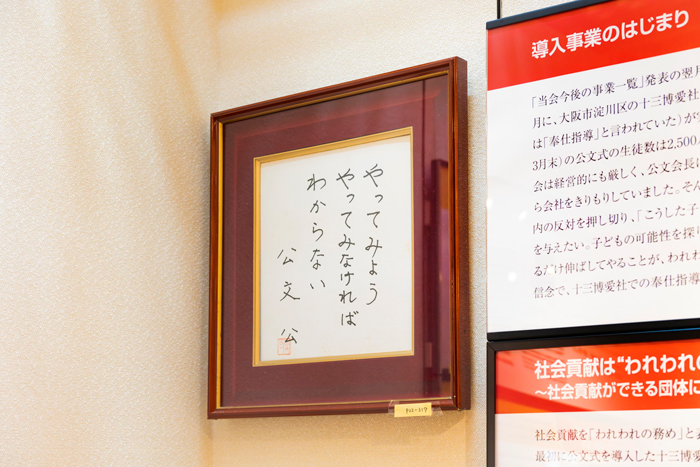 やってみよう
やってみなければ
わからない
公文 公
導入事業のはじまり
「当会今後の事業一覧」発表の翌
月に、大阪市淀川区の十三博愛社
は「奉仕指導」と言われていた)が
3月末)の公文式の生徒数は2,500
会は経営的にも厳しく、公文会長
ら会社をきりもりしていました。そん
内の反対を押し切り、「こうした子
を与えたい。子どもの可能性を探り
るだけ伸ばしてやることが、われわれ
信念で、十三博愛社での奉仕指導
社会貢献は“われわれの
～社会貢献ができる団体に
社会貢献を「われわれの務め」と
最初に公文式を導入した十三博